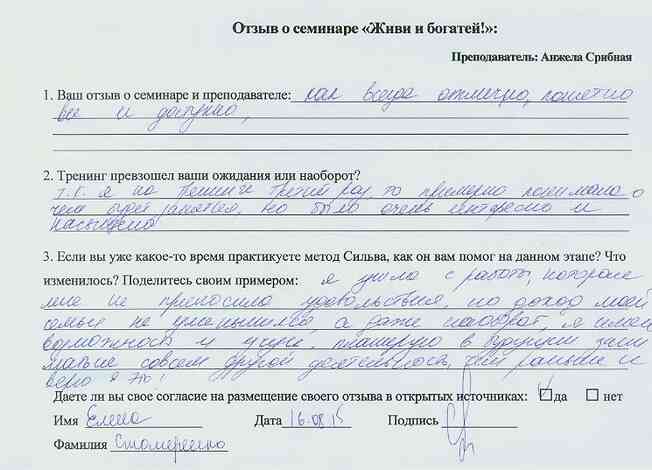 Отзыв о семинаре «Живи и богатей!»:
Преподаватель: Анжела Срибная
1. Ваш отзыв о семинаре и преподавателе: как всегда отлично, понятно
все и доступно,
2. Тренинг превзошел ваши ожидания или наоборот?
т.к. я на тенинге третий раз, то примерно понимала о
чем будет занятия, но было очень интересно и
насыщено
3. Если вы уже какое-то время практикуете метод Сильва, как он вам помог на данном этапе? Что
изменилось? Поделитесь своим примером: я ушла с работы, которая
мне не приносила удовольствия, но доход моей
семьи не уменьшился, а даже наоборот, я имею
возможность и учусь, планирую в будущем зани
маться совсем другой деятельностью, чем раньше и
верю в это!
Даете ли вы свое согласие на размещение своего отзыва в открытых источниках: да нет
Имя Елена Дата 16.08.15 Подпись
Фамилия